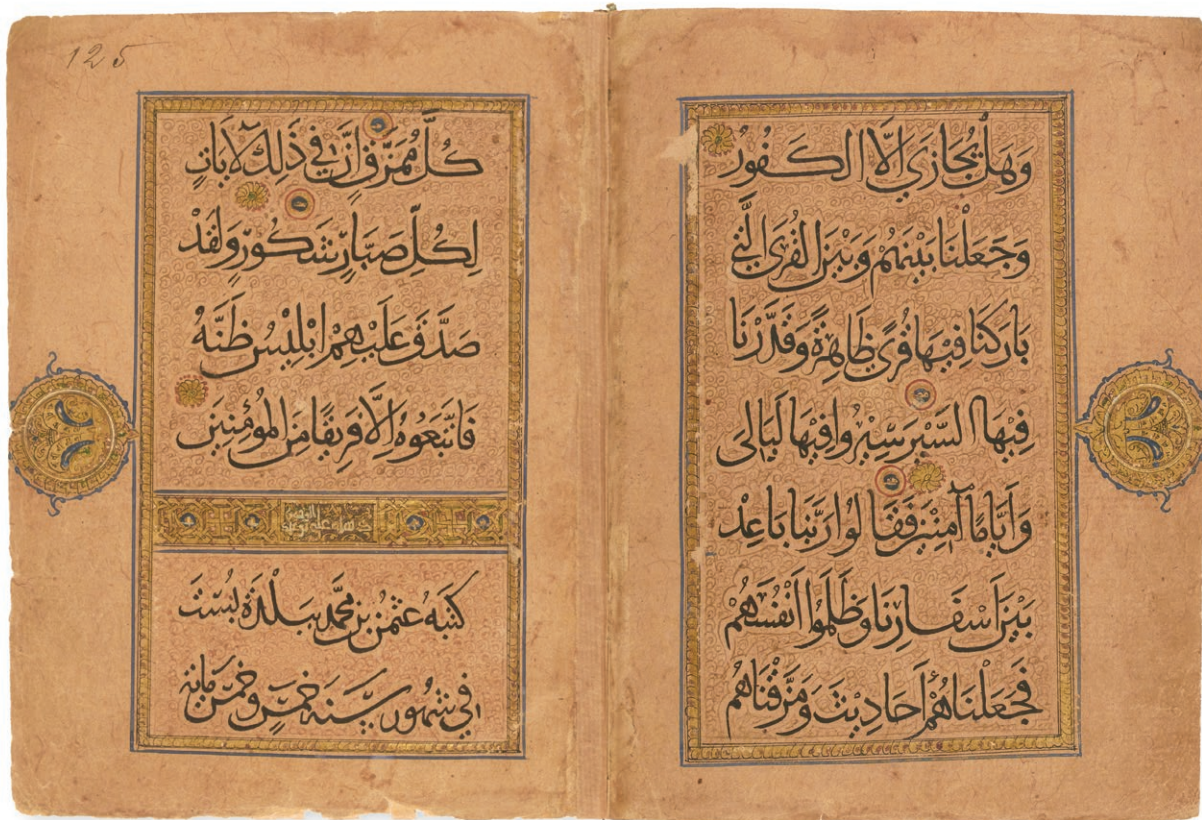 وَهَلْ يُجَازَي اِلَّا الكَفُورُ
وَجَعَلْنَا بَيْنَهُمْ وَبَيْنَ القُرَي الَّتِي
بَارَكْنَا فِيْهَا قُرًي ظَاهِرَةً وَقَدَّرْنَا
فِيْهَا السَّيْرَ سِيْرُوا فِيْهَا لَيَالِىَ
وَاَيَّامًا آمِنِيْنَ فَقَالُوا رَبَّنَا بَاعِدْ
بَيْنَ اَسْفَارِنَا وَظَلَمُوا اَنْفُسَهُمْ
فَجَعَلْنَاهُمْ اَحَادِيْثَ وَمَزَّقْنَاهُمْ
125
كُلَّ مُمَزَّقٍ اِنَّ فِي ذَلِكَ لَآيَاتٍ
لِكُلِّ صَبَّارٍ شَكُوْرٍ وَلَقَدْ
صَدَّقَ عَلَيْهِمْ اِبْلِيْسُ ظَنَّهُ
فَاتَّبَعُوهُ اِلَّا فَرِيْقًا مِنَ المُؤْمِنِيْنَ
كتبَهُ عثمٰنُ بن محمَّد ببلدة بُسْت
في شهُور سَنَة خمسٍ وخمسَ مائه